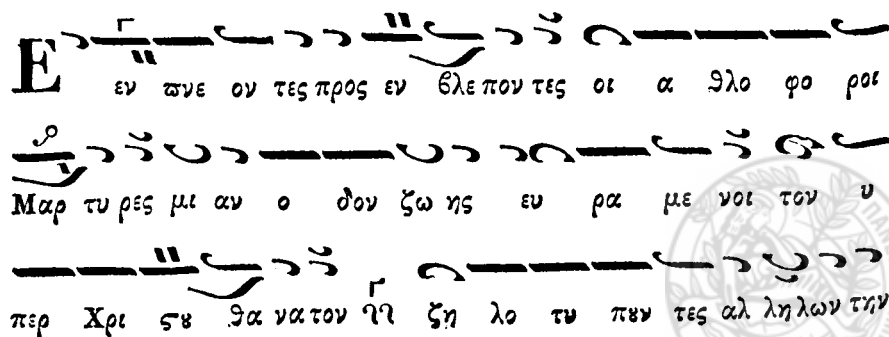 Ε εν ϖνε ον τες προς εν βλε πον τες οι α θλο φο ροι
Μαρ τυ ρες μι αν ο δον ζω ης ευ ρα με νοι τον υ
περ Χρι ϛȣ θα να τον ζη λο τυ πȣν τες αλ λη λων την